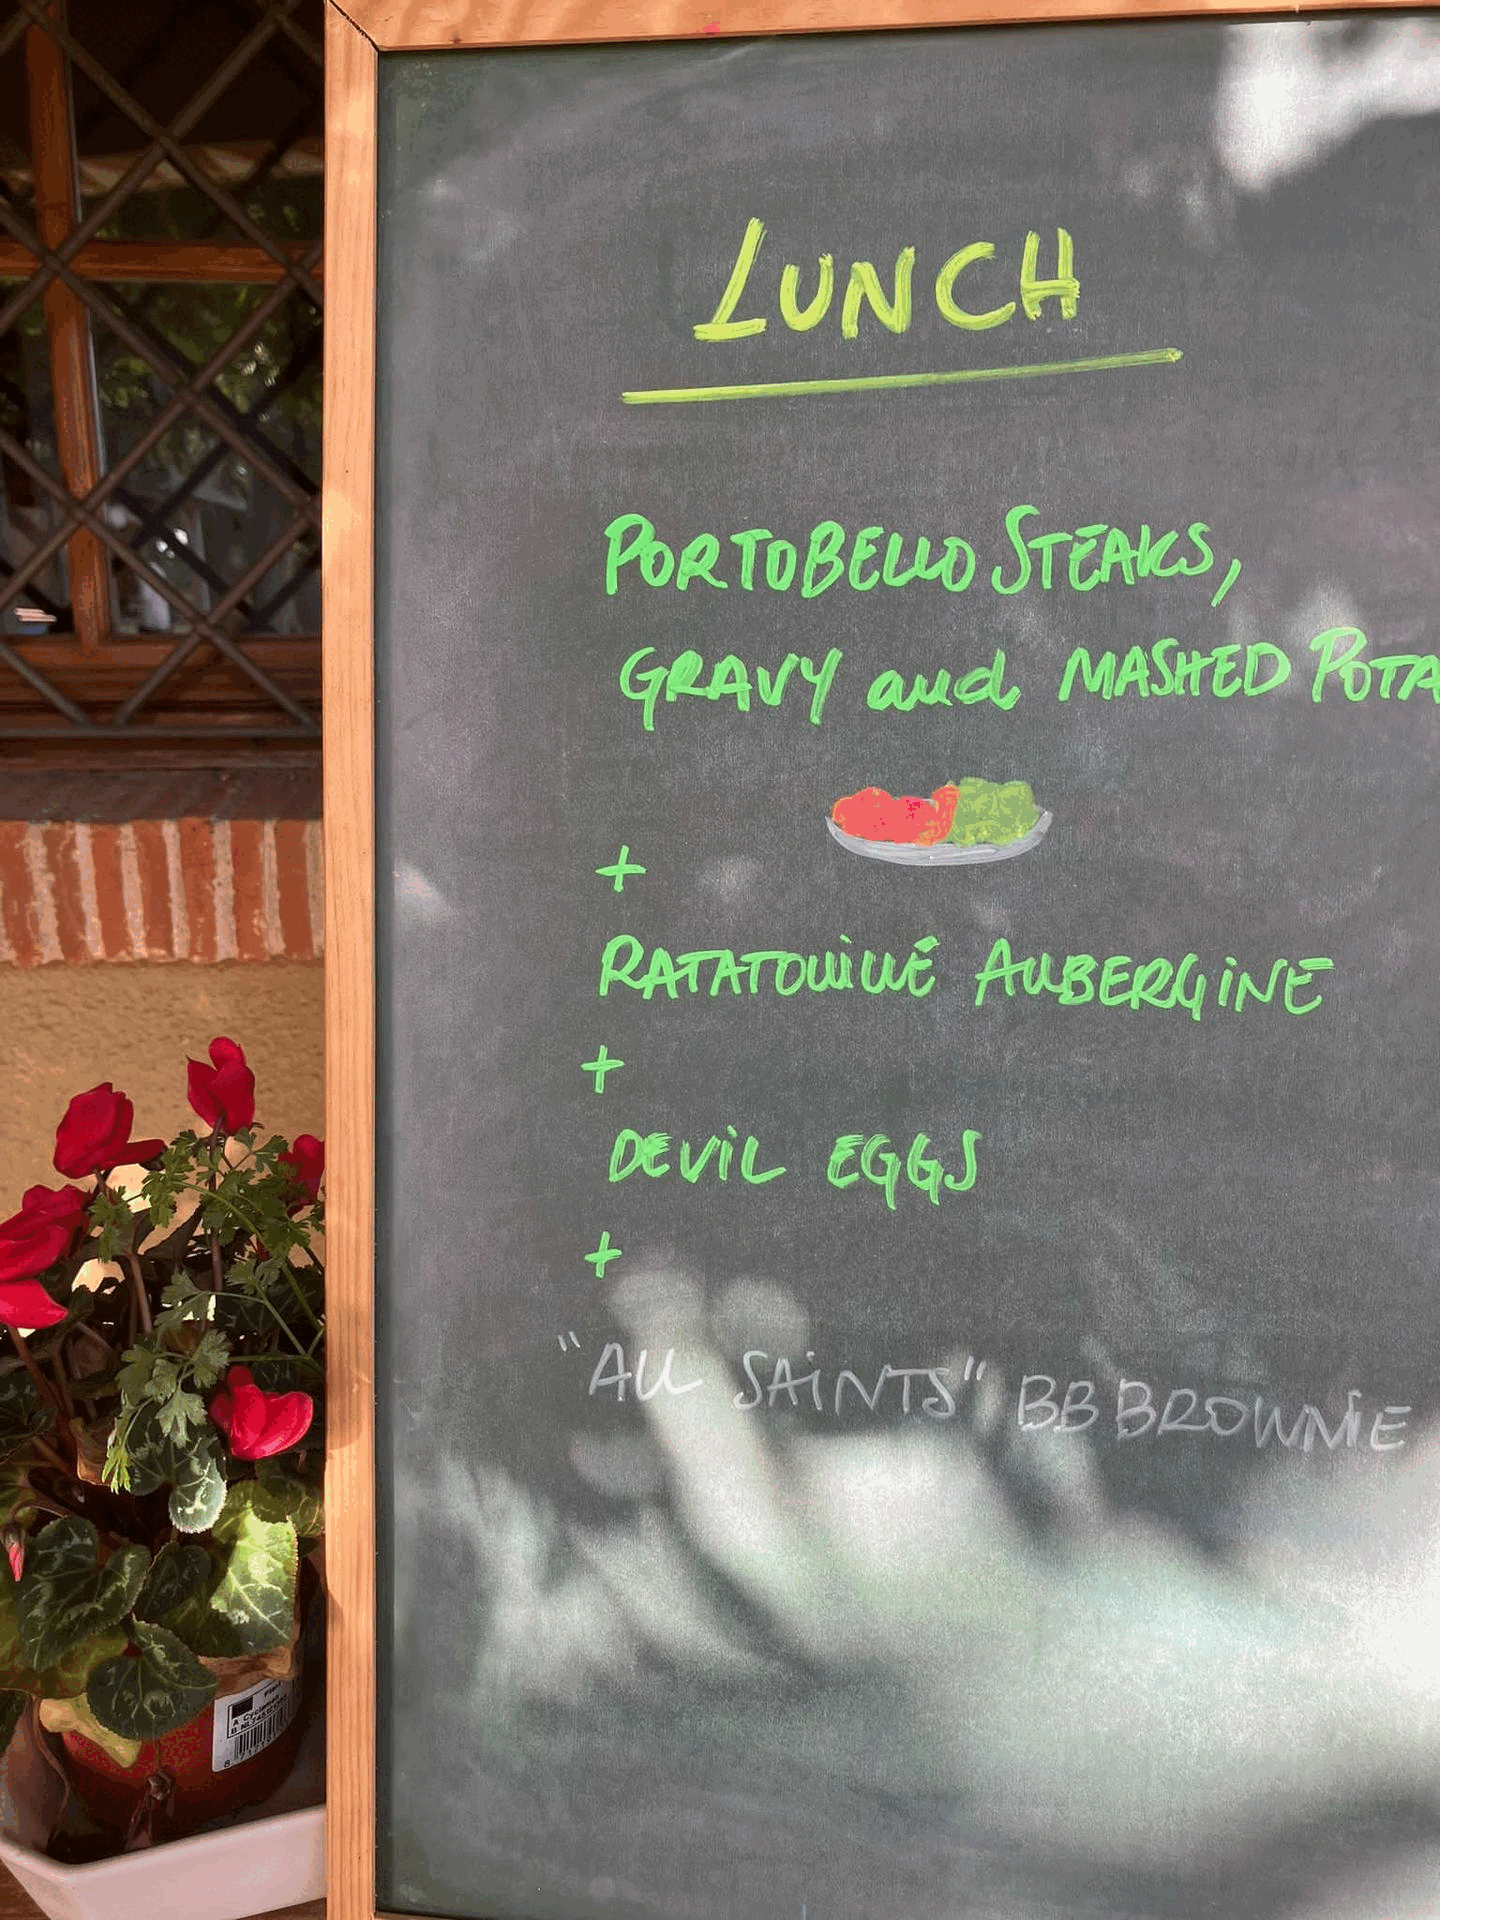 LUNCH
PORTOBELLO STEAKS,
GRAVY and MASHED POTA
+
RATATOUILLE AUBERGINE
+
DEVIL EGGS
+
"ALL SAINTS" BB BROWNIE
Plant
A Cyclamen